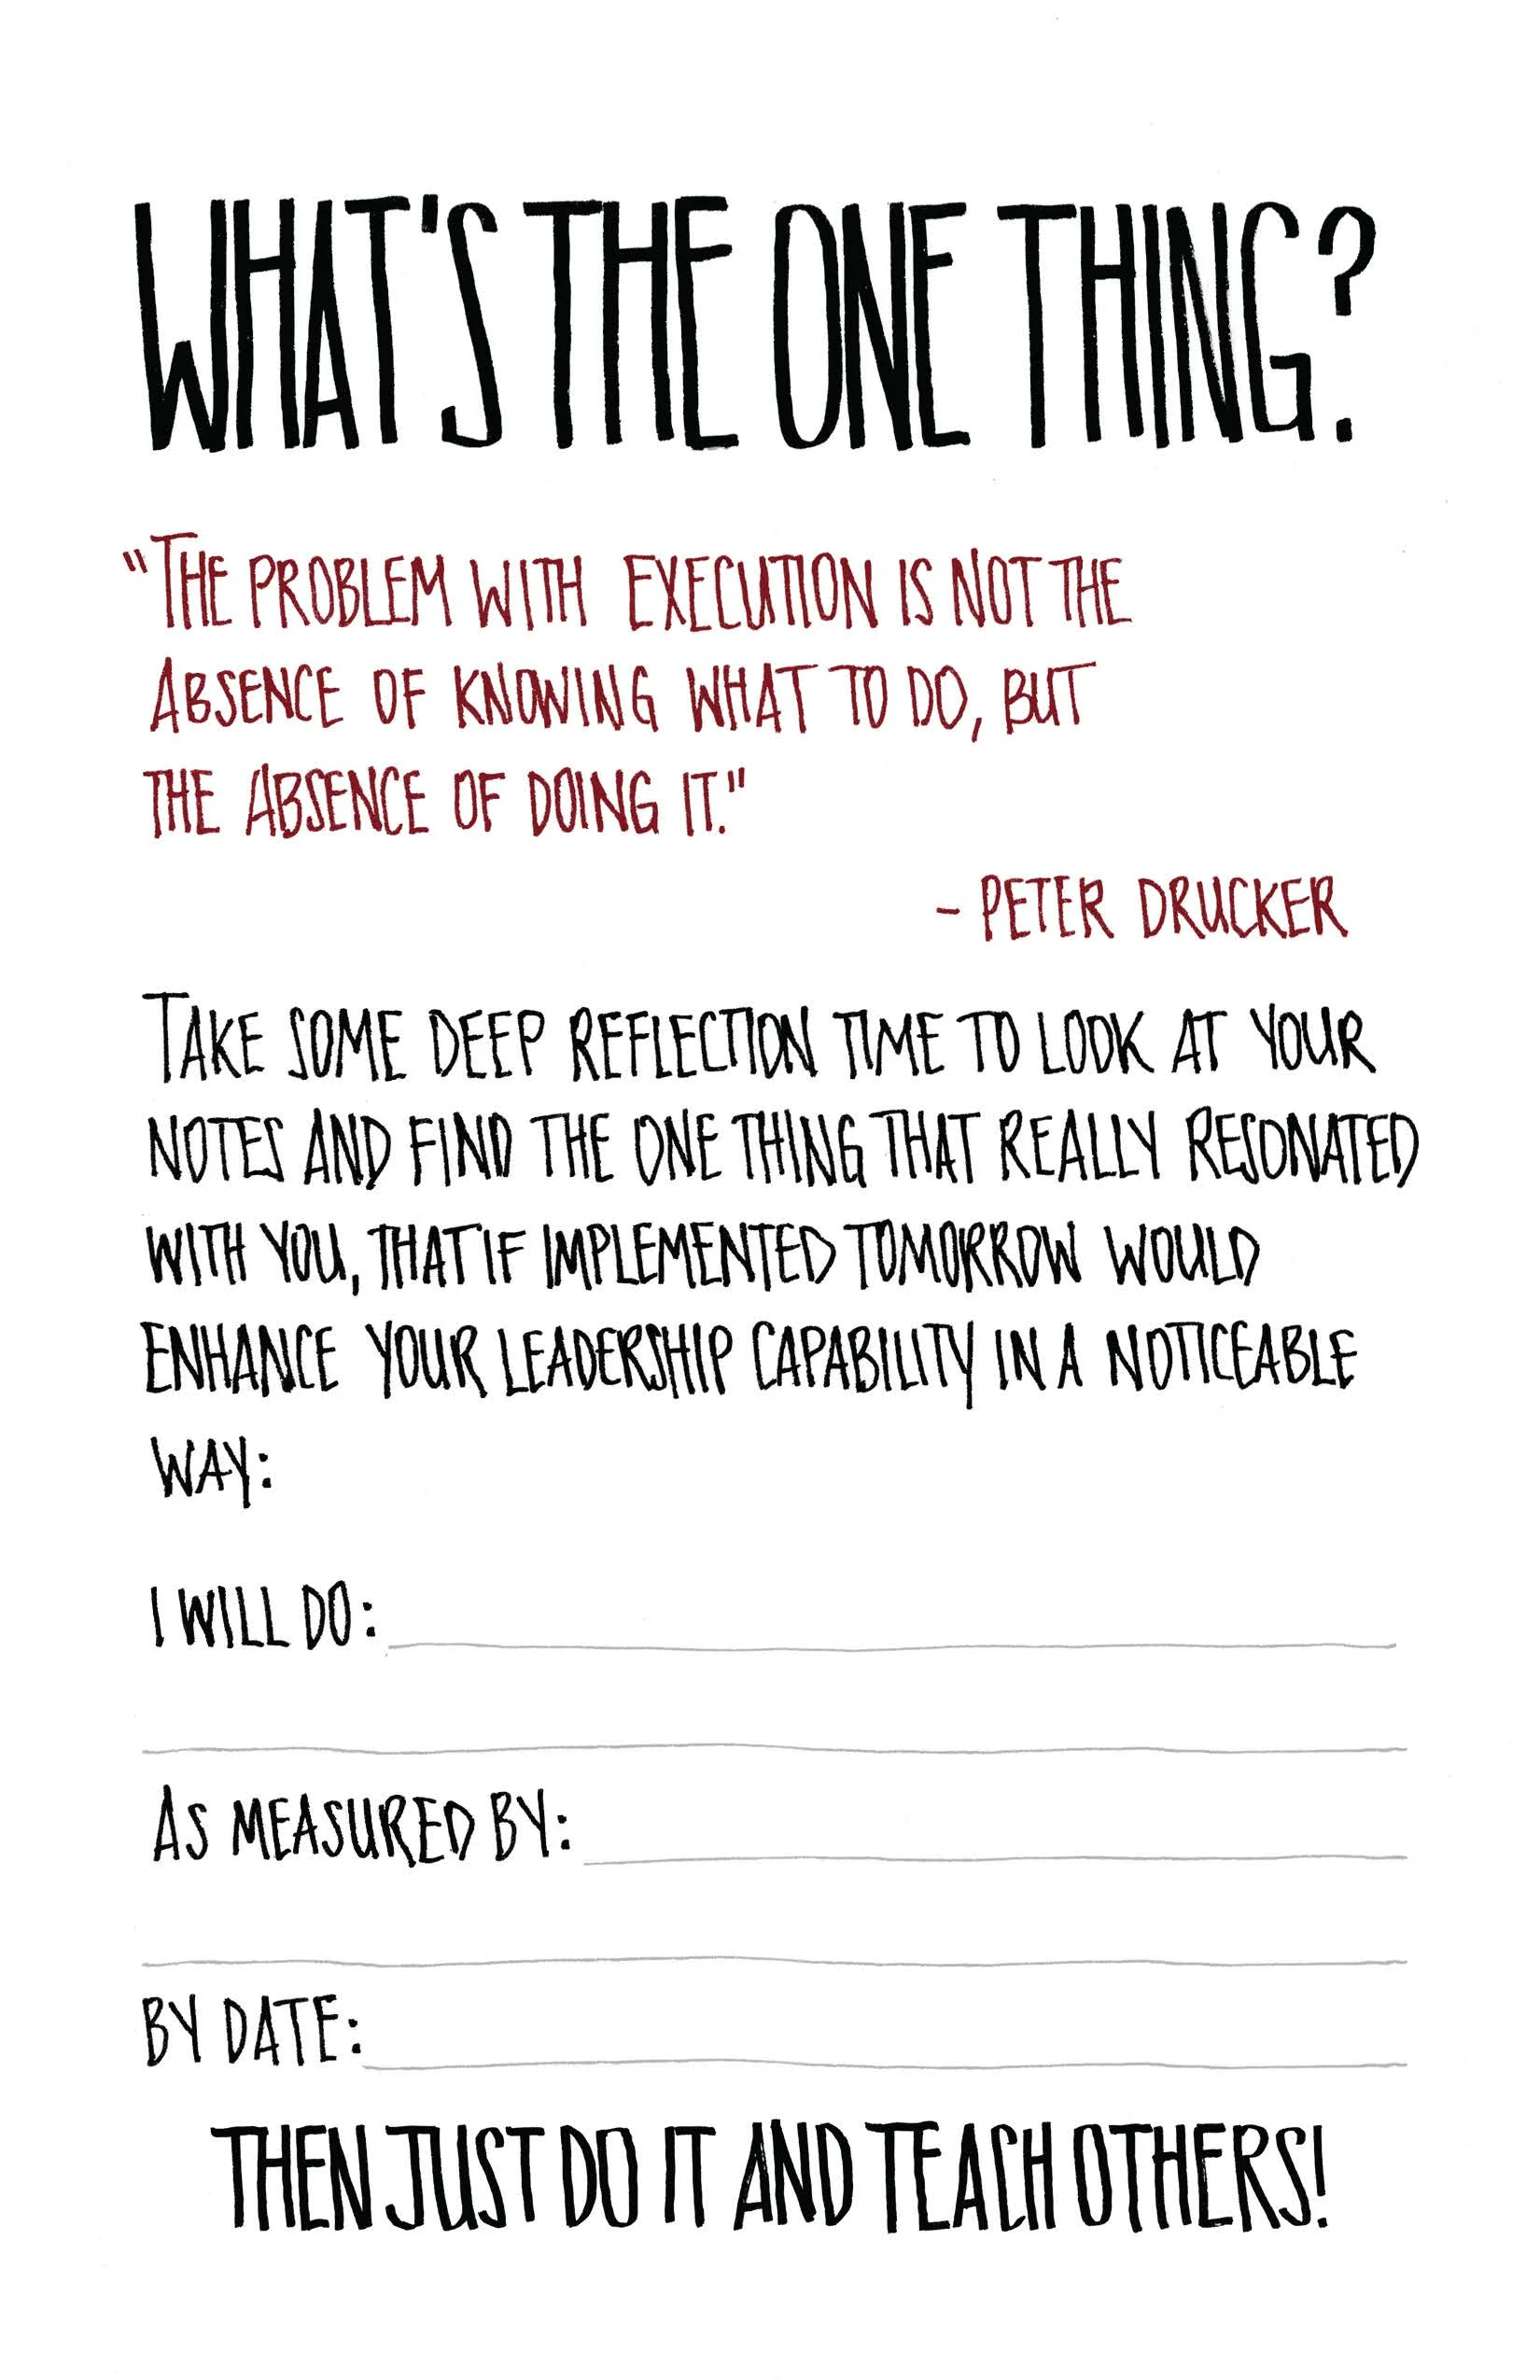 WHAT'S THE ONE THING?
"THE PROBLEM WITH EXECUTION IS NOT THE
ABSENCE OF KNOWING WHAT TO DO, BUT
THE ABSENCE OF DOING IT."
- PETER DRUCKER
TAKE SOME DEEP REFLECTION TIME TO LOOK AT YOUR
NOTES AND FIND THE ONE THING THAT REALLY RESONATED
WITH YOU, THAT IF IMPLEMENTED TOMORROW WOULD
ENHANCE YOUR LEADERSHIP CAPABILITY IN A NOTICEABLE
WAY:
I WILL DO:
AS MEASURED BY:
BY DATE:
THEN JUST DO IT AND TEACH OTHERS!